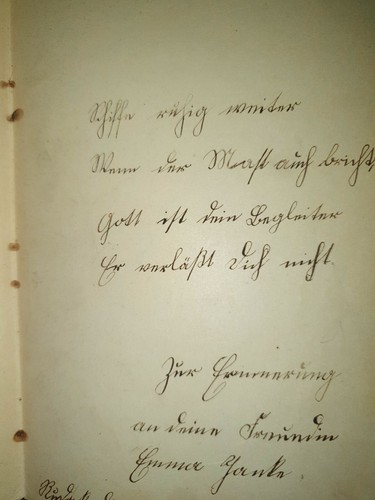 Schiffe ruhig weiter
Wenn der Mast auch bricht,
Gott ist dein Begleiter
Er verläßt Dich nicht.
Zur Erinnerung
an deine Freundin
Emma Janke.